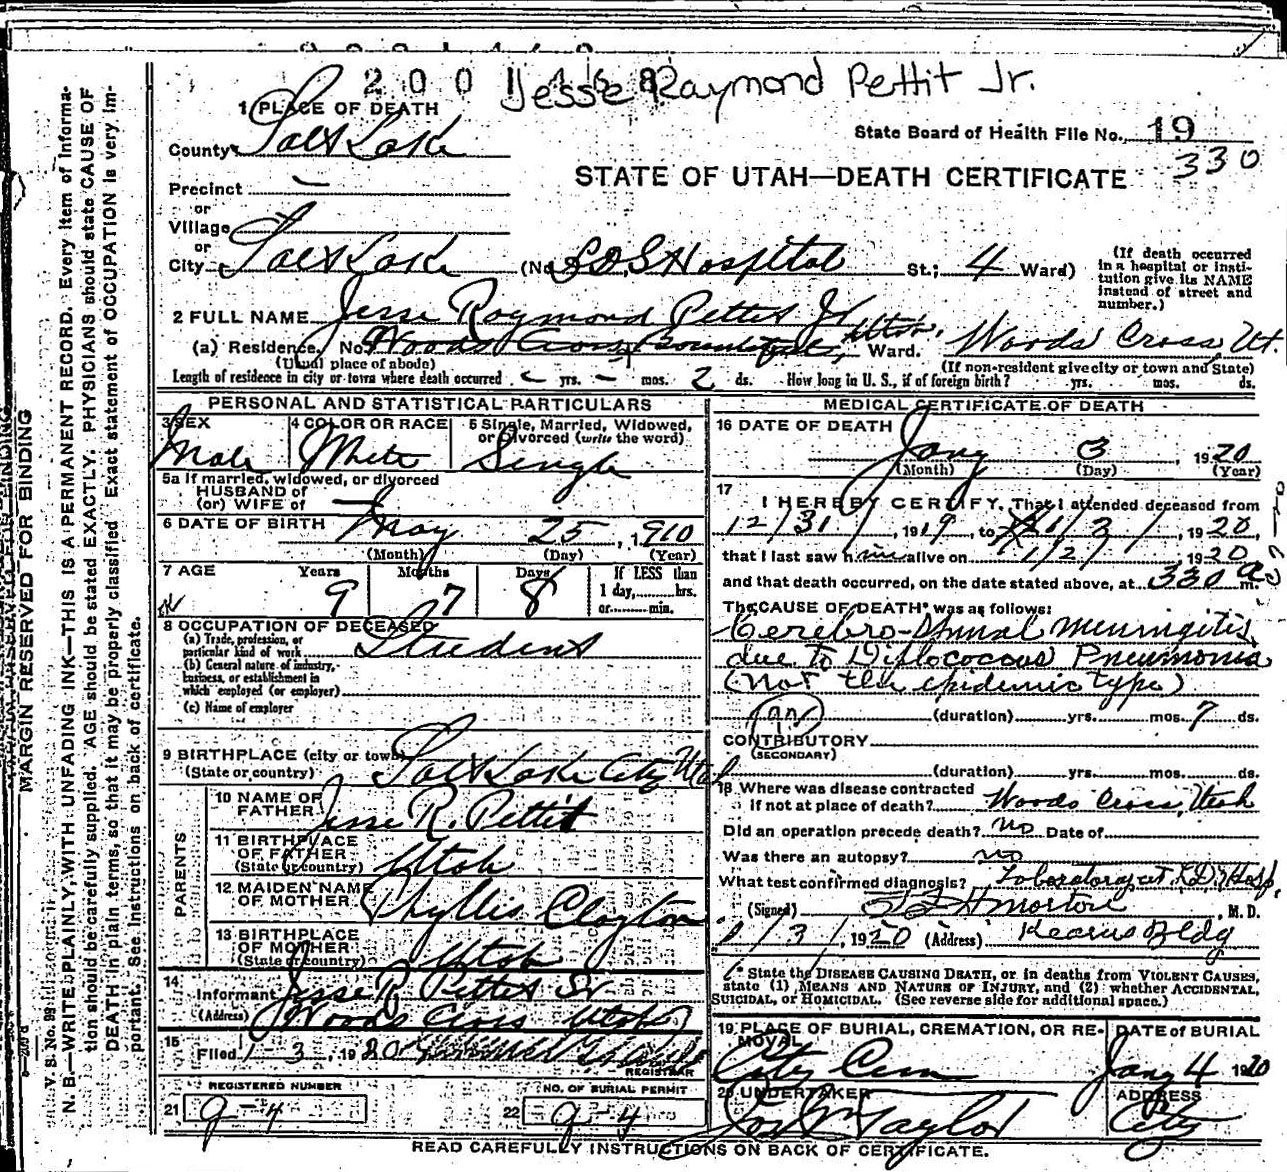 2001468
Jesse Raymond Pettit Jr.
1 PLACE OF DEATH
County Salt Lake
State Board of Health File No. 19
330
Precinct —
STATE OF UTAH—DEATH CERTIFICATE
or
Village
or
City Salt Lake (No. L.D.S Hospital St.; 4 Ward)
(If death occurred in a hospital or institution give its NAME instead of street and number.)
2 FULL NAME Jesse Raymond Pettit Jr
(a) Residence. No. Woods Cross, Bountiful, Utah. Ward. Woods Cross, Ut.
(Usual place of abode) (If non-resident give city or town and State)
Length of residence in city or town where death occurred - yrs. - mos. 2 ds. How long in U. S., if of foreign birth? yrs. mos. ds.
PERSONAL AND STATISTICAL PARTICULARS
3 SEX Male
4 COLOR OR RACE White
5 Single, Married, Widowed, or Divorced (write the word) Single
5a If married, widowed, or divorced
HUSBAND of
(or) WIFE of —
6 DATE OF BIRTH May 25, 1910
(Month) (Day) (Year)
7 AGE Years 9 Months 7 Days 8
If LESS than 1 day, hrs. or min.
8 OCCUPATION OF DECEASED
(a) Trade, profession, or particular kind of work Student
(b) General nature of industry, business, or establishment in which employed (or employer)
(c) Name of employer
9 BIRTHPLACE (city or town) Salt Lake City Utah
(State or country)
PARENTS
10 NAME OF FATHER Jesse R. Pettit
11 BIRTHPLACE OF FATHER (State or country) Utah
12 MAIDEN NAME OF MOTHER Phyllis Clayton
13 BIRTHPLACE OF MOTHER (State or country) Utah
14
Informant Jesse R. Pettit Sr
(Address) Woods Cross Utah
15
Filed 1 3, 1920
REGISTRAR
REGISTERED NUMBER
21 9-4
NO. OF BURIAL PERMIT
22 9-4
MEDICAL CERTIFICATE OF DEATH
16 DATE OF DEATH
Jany 3, 1920
(Month) (Day) (Year)
17
I HEREBY CERTIFY, That I attended deceased from
12/31/, 1919, to 1/3/, 1920,
that I last saw him alive on 1/2/ 1920
and that death occurred, on the date stated above, at 330 a m.
The CAUSE OF DEATH* was as follows:
Cerebro-Spinal Meningitis
due to Diplococcus Pneumonia
(not the epidemic type)
(duration) yrs. mos. 7 ds.
CONTRIBUTORY
(SECONDARY)
(duration) yrs. mos. ds.
18 Where was disease contracted
if not at place of death? Woods Cross, Utah
Did an operation precede death? no Date of
Was there an autopsy? no
What test confirmed diagnosis? Laboratory at L.D.S Hosp.
(Signed) Morton, M. D.
1/3/, 1920 (Address) Kearns Bldg
* State the DISEASE CAUSING DEATH, or in deaths from VIOLENT CAUSES, state (1) MEANS AND NATURE OF INJURY, and (2) whether ACCIDENTAL, SUICIDAL, or HOMICIDAL. (See reverse side for additional space.)
19 PLACE OF BURIAL, CREMATION, OR REMOVAL
City Cem
DATE OF BURIAL
Jany 4 1920
20 UNDERTAKER
Jos Wm Taylor
ADDRESS
City
READ CAREFULLY INSTRUCTIONS ON BACK OF CERTIFICATE.
MARGIN RESERVED FOR BINDING
V. S. No. 99
N. B.—WRITE PLAINLY, WITH UNFADING INK—THIS IS A PERMANENT RECORD. Every item of information should be carefully supplied. AGE should be stated EXACTLY. PHYSICIANS should state CAUSE OF DEATH in plain terms, so that it may be properly classified. Exact statement of OCCUPATION is very important. See instructions on back of certificate.